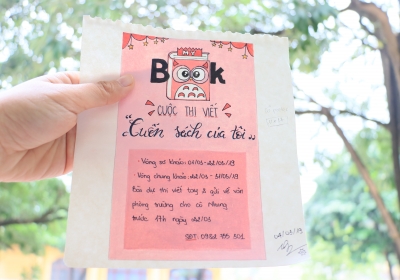 BOOK
CUỘC THI VIẾT
"Cuốn sách của tôi"
- Vòng sơ khảo: 01/03-22/03/19
- Vòng chung khảo: 22/03 - 31/03/19
Bài dự thi viết tay & gửi về văn
phòng trường cho cô Nhung
trước 17h ngày 22/03
SĐT: 0982 795 502